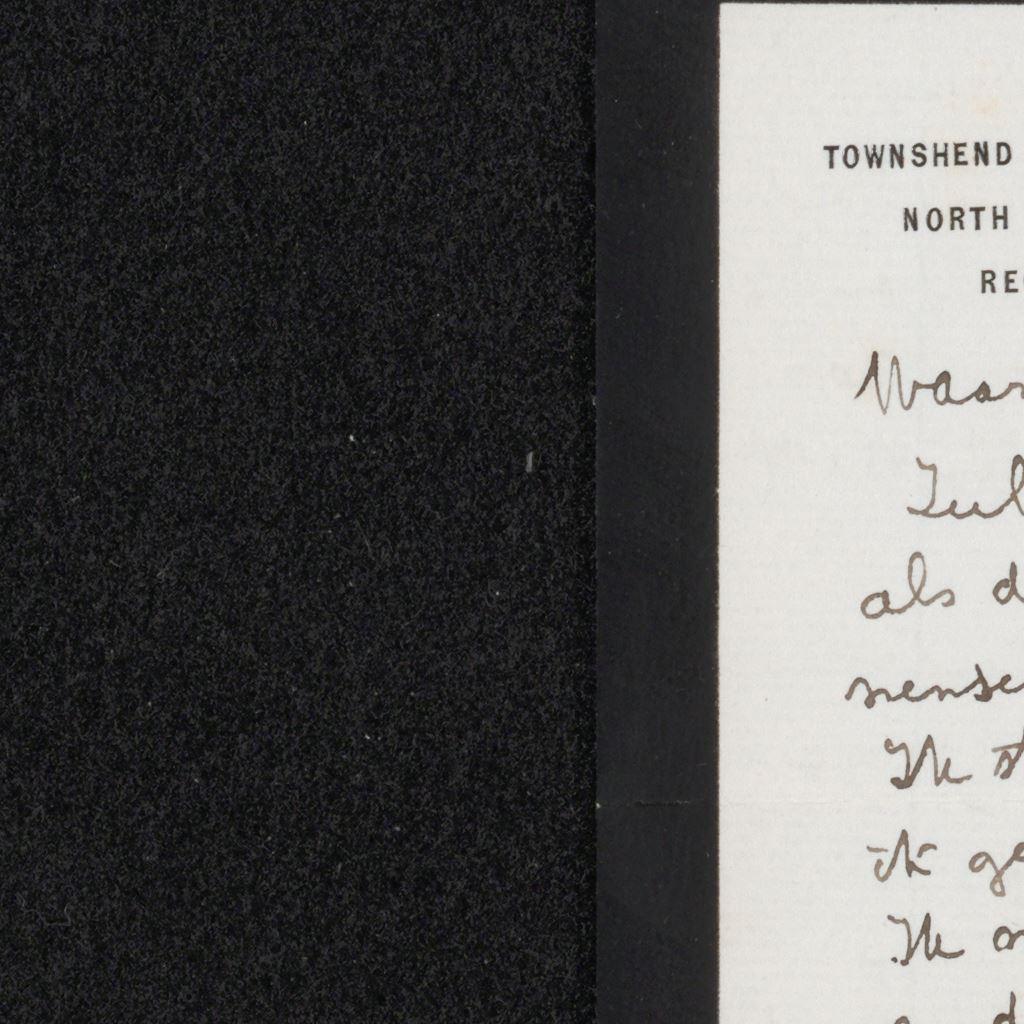 TOWNSHEND
NORTH
RE
Waar
Zul
als d
nense
Ik st
ik ge
Ik